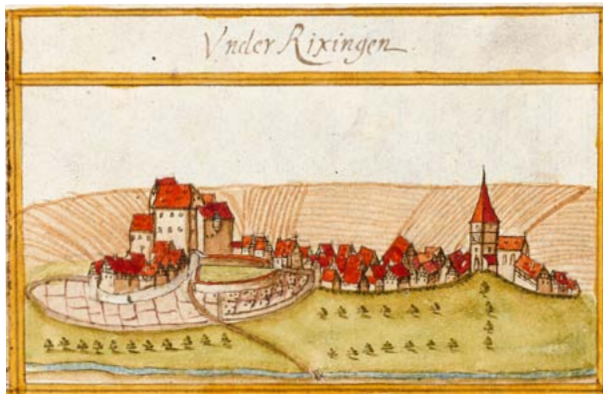 Vnder Rixingen.